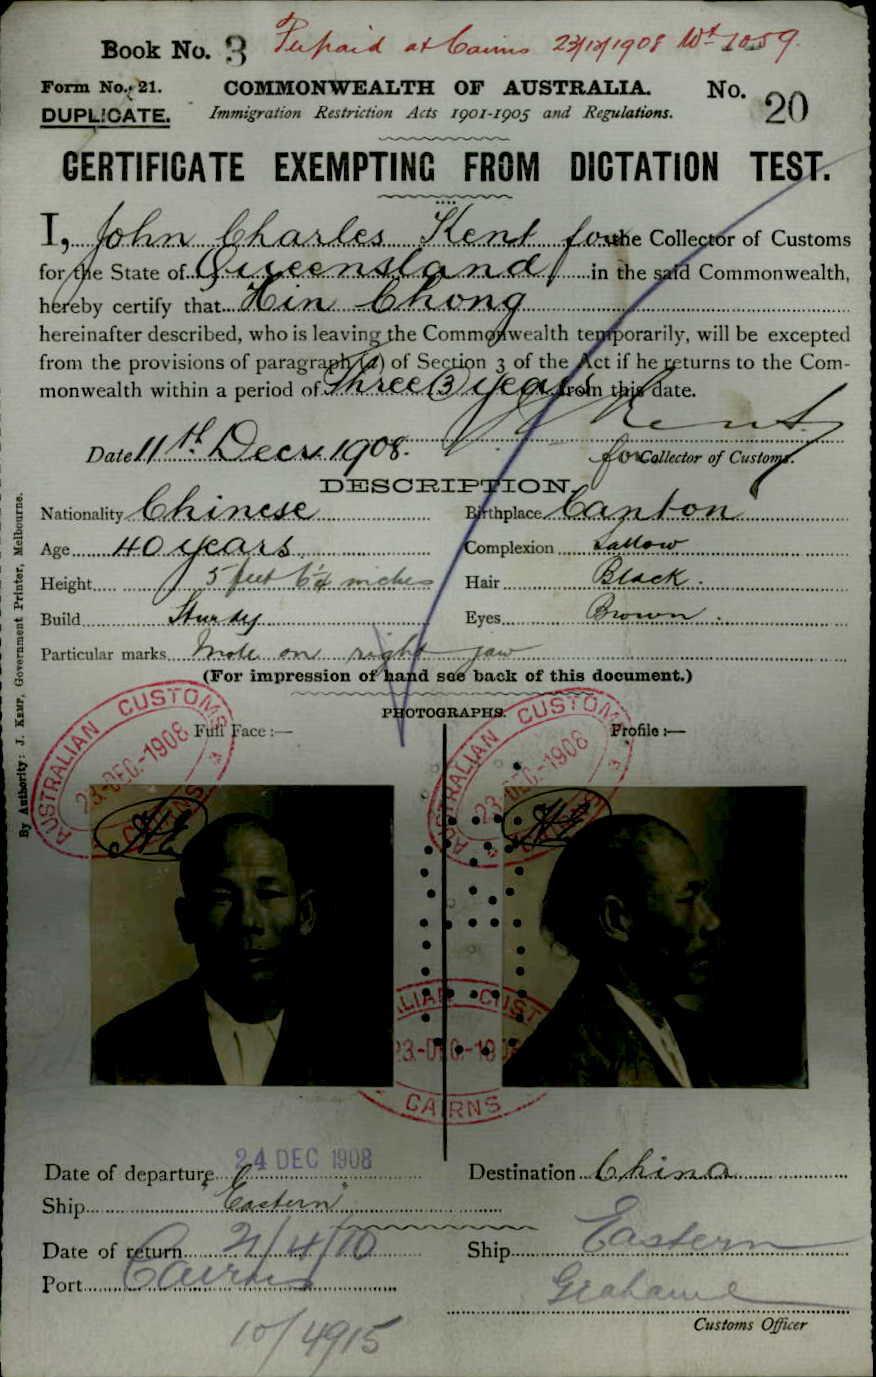 Book No. 3 Prepaid at Cairns 23/12/1908 No. 1059.
Form No. 21. COMMONWEALTH OF AUSTRALIA. No. 20
DUPLICATE. Immigration Restriction Acts 1901-1905 and Regulations.
CERTIFICATE EXEMPTING FROM DICTATION TEST.
I, John Charles Kent for the Collector of Customs
for the State of Queensland in the said Commonwealth,
hereby certify that Hin Chong
hereinafter described, who is leaving the Commonwealth temporarily, will be excepted
from the provisions of paragraph (a) of Section 3 of the Act if he returns to the Com-
monwealth within a period of Three (3) years from this date.
J C Kent
Date 11th Decr 1908. for Collector of Customs.
DESCRIPTION.
Nationality Chinese Birthplace Canton
Age 40 years Complexion Sallow
Height 5 feet 6¼ inches Hair Black.
Build Sturdy Eyes Brown.
Particular marks Mole on right jaw
(For impression of hand see back of this document.)
PHOTOGRAPHS.
Full Face :— Profile :—
AUSTRALIAN CUSTOMS 23.-DEC.-1908 CAIRNS
AUSTRALIAN CUSTOMS 23.-DEC.-1908
LIAN CUST
23.-DEC.-190
CAIRNS
Date of departure 24 DEC 1908 Destination China
Ship "Eastern"
Date of return 21/4/10 Ship Eastern
Port Cairns Grahame
Customs Officer
10/4915
By Authority: J. Kemp, Government Printer, Melbourne.